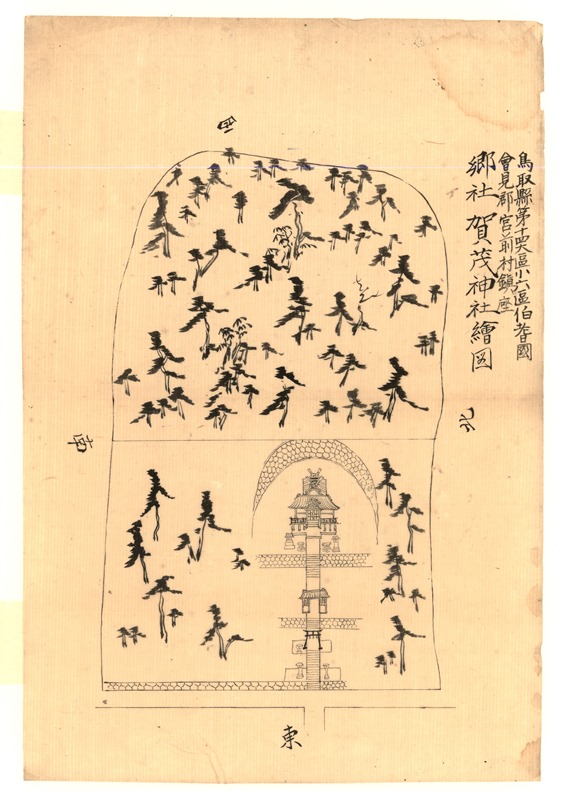 鳥取縣第十四大區小六區伯耆國
會見郡宮前村鎮座
郷社賀茂神社繪図
西
北
南
東